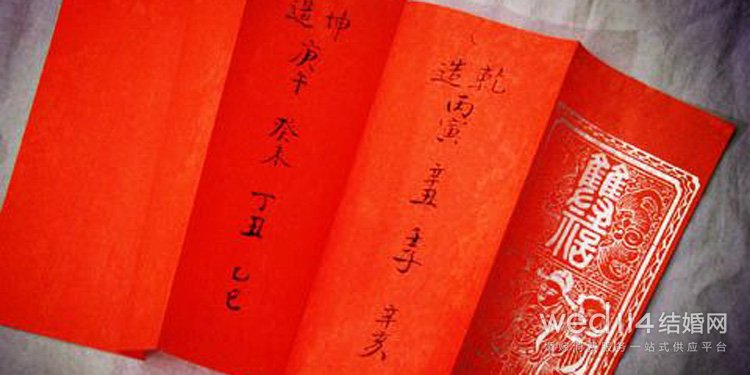 乾造 丙寅 辛丑 壬子 辛亥
坤造 庚午 癸未 丁丑 乙巳
wed114结婚网
服务一站式供应平台